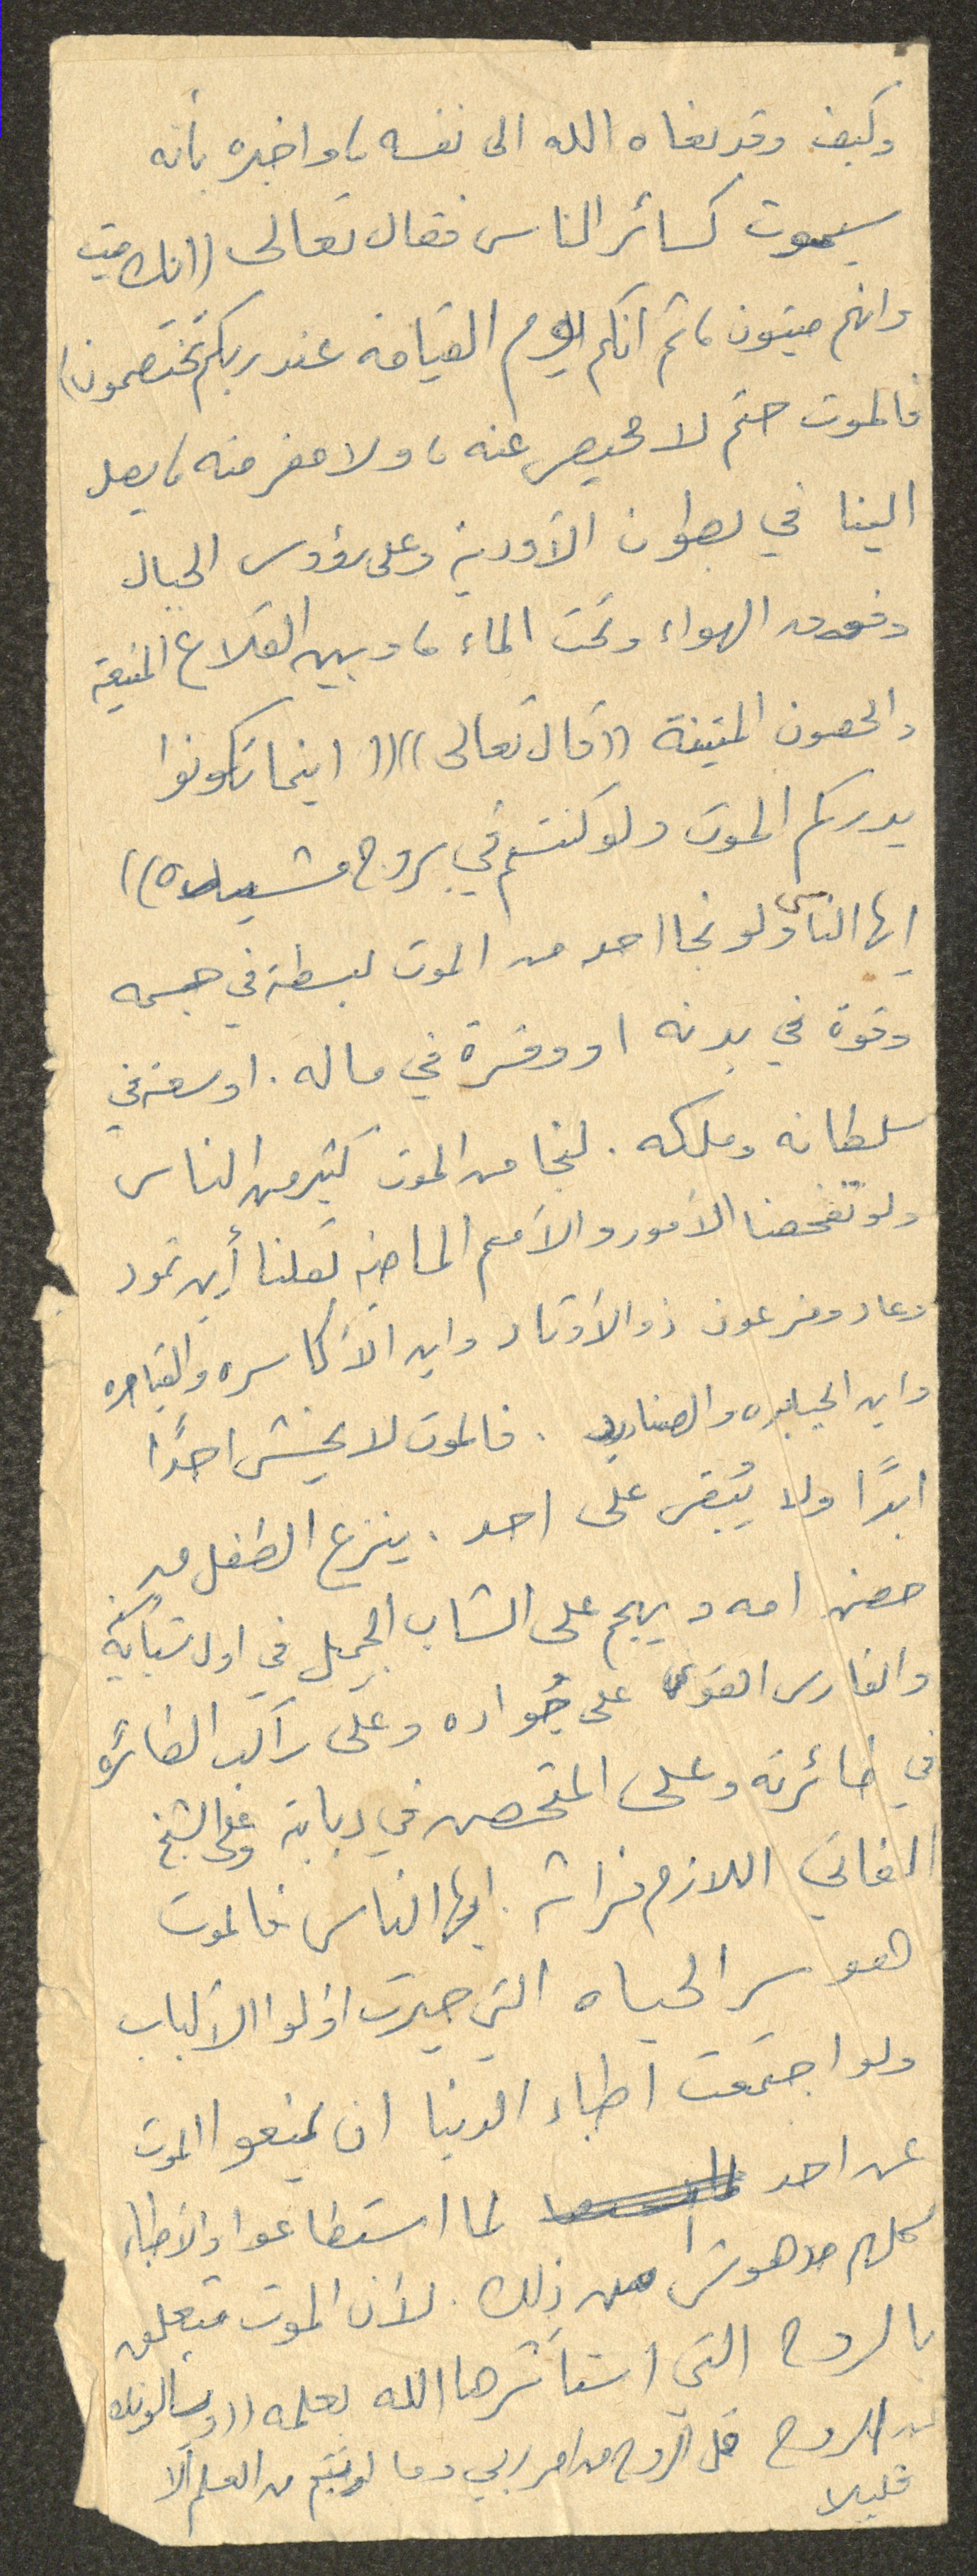 وكيف وقد نعاه الله الى نفسه، واخبره بأنه
سيموت كسائر الناس فقال تعالى ((انك ميت
وانهم ميتون، ثم انكم يوم القيامة عند ربكم تختصمون))
فالموت حتم لا محيص عنه، ولا مفر منه، يصل
الينا في بطون الأودية وعلى رؤوس الجبال
وفوق الهواء وتحت الماء، وبين القلاع المنيعة
والحصون المتينة ((قال تعالى)) ((اينما تكونوا
يدرككم الموت ولو كنتم في بروج مشيده))
ايها الناس ولو نجا احد من الموت لبسطة في جسمه
وقوة في بدنه او وفرة في ماله. او سعة في
سلطانه وملكه. لنجا من الموت كثير من الناس
ولو تفحصنا الأمور والأمم الماضية لقلنا أين ثمود
وعاد وفرعون ذو الأوتاد واين الأكاسره والقياصره
واين الجبابره والصناديد. فالموت لا يخشى احدًا
ابدًا ولا يُبقى على احد. ينزع الطفل من
حضن امه ويهجم على الشاب الجميل في اول شبابه
والفارس القوى على جواده وعلى راكب الطائره
في طائرته وعلى المتحصن في دبابته وعلى الشيخ
الفاني اللازم فراشه. ايها الناس فالموت
هو سر الحياه التي حيرت اولوا الألباب
ولو اجتمعت اطباء الدنيا ان يمنعوا الموت
عن احد لما استطاعوا والأطباء
كلهم مدهوش من ذلك. لأن الموت متعلق
بالروح التي استأثرها الله بعلمه ((ويسألونك
عن الروح قل الروح من امر ربي وما اوتيتم من العلم الا
قليلا